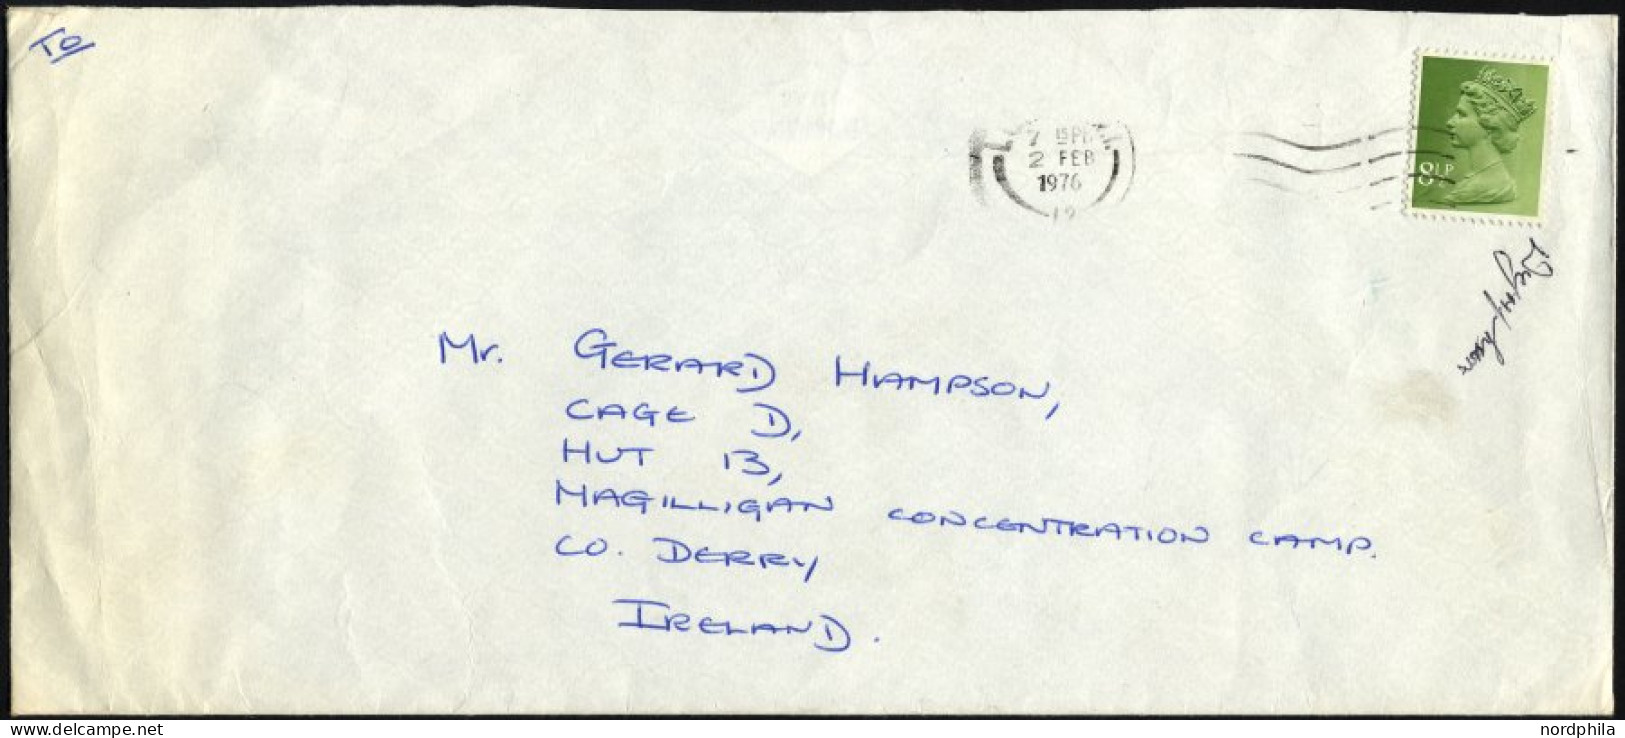 To
7 15 PM
2 FEB
1976
19
8½P
Mr. GERARD HAMPSON,
CAGE D,
HUT 13,
MAGILLIGAN CONCENTRATION CAMP.
CO. DERRY
IRELAND.
nordphila